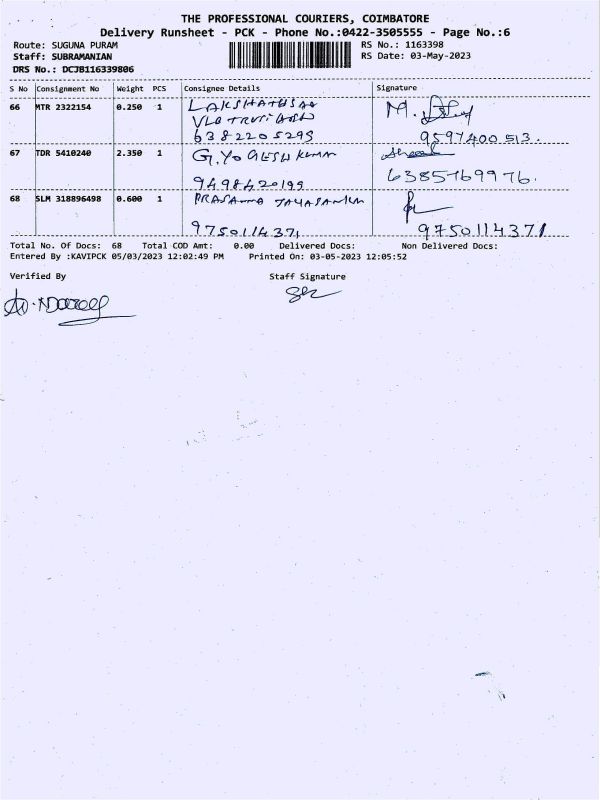 THE PROFESSIONAL COURIERS, COIMBATORE
Delivery Runsheet - PCK - Phone No.:0422-3505555 - Page No.:6
Route: SUGUNA PURAM RS No.: 1163398
Staff: SUBRAMANIAN RS Date: 03-May-2023
DRS No.: DCJB116339806
S No Consignment No Weight PCS Consignee Details Signature
66 MTR 2322154 0.250 1
6382205293 9597400513.
67 TDR 5410240 2.350 1 G.YOGESH KUMAR
9498420199 6385769976.
68 SLM 318896498 0.600 1 PRASANNA JAYASANKAR
9750114371 9750114371
Total No. Of Docs: 68 Total COD Amt: 0.00 Delivered Docs: Non Delivered Docs:
Entered By :KAVIPCK 05/03/2023 12:02:49 PM Printed On: 03-05-2023 12:05:52
Verified By Staff Signature